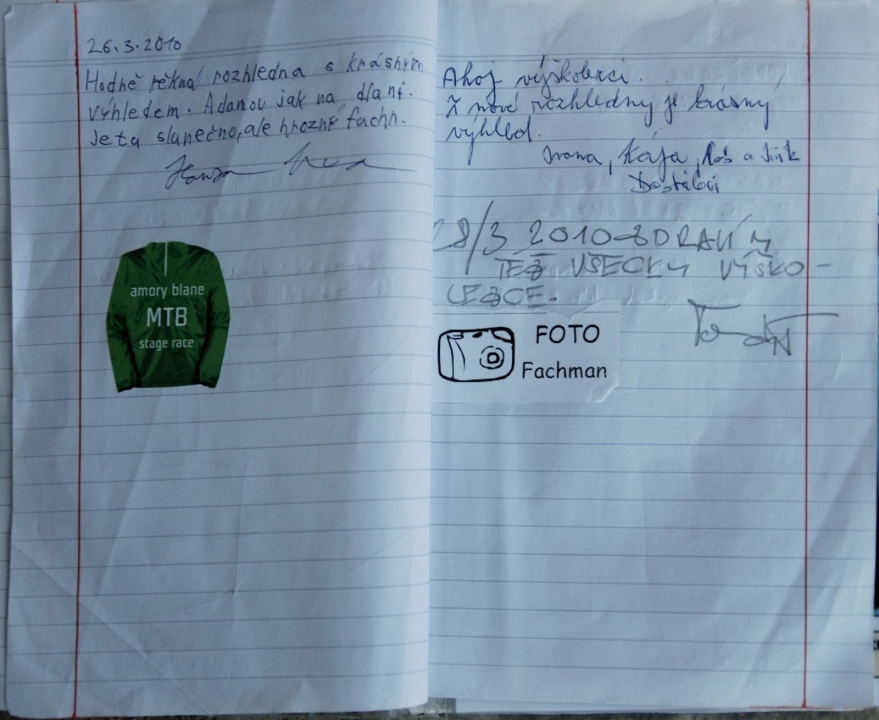 26.3.2010
Hodně pěkná rozhledna s krásným
výhledem. Adamov jak na dlani.
Je tu slunečno, ale hrozně fachr.
amory blane
MTB
stage race
Ahoj výškolezci.
Z nové rozhledny je krásný
výhled.
Ivana, Kája, a Jirk
Dostálovi
28/3 2010 - ZDRAVÍM
TEŽ VŠECKY VÝŠKO-
LEZCE.
FOTO
Fachman